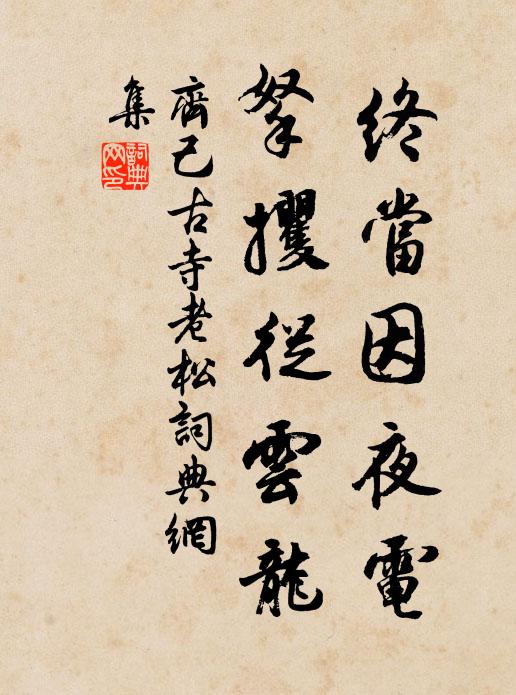 終當因夜電
拏攫從雲龍
齊己古寺老松詞典網
集
詞典
网印